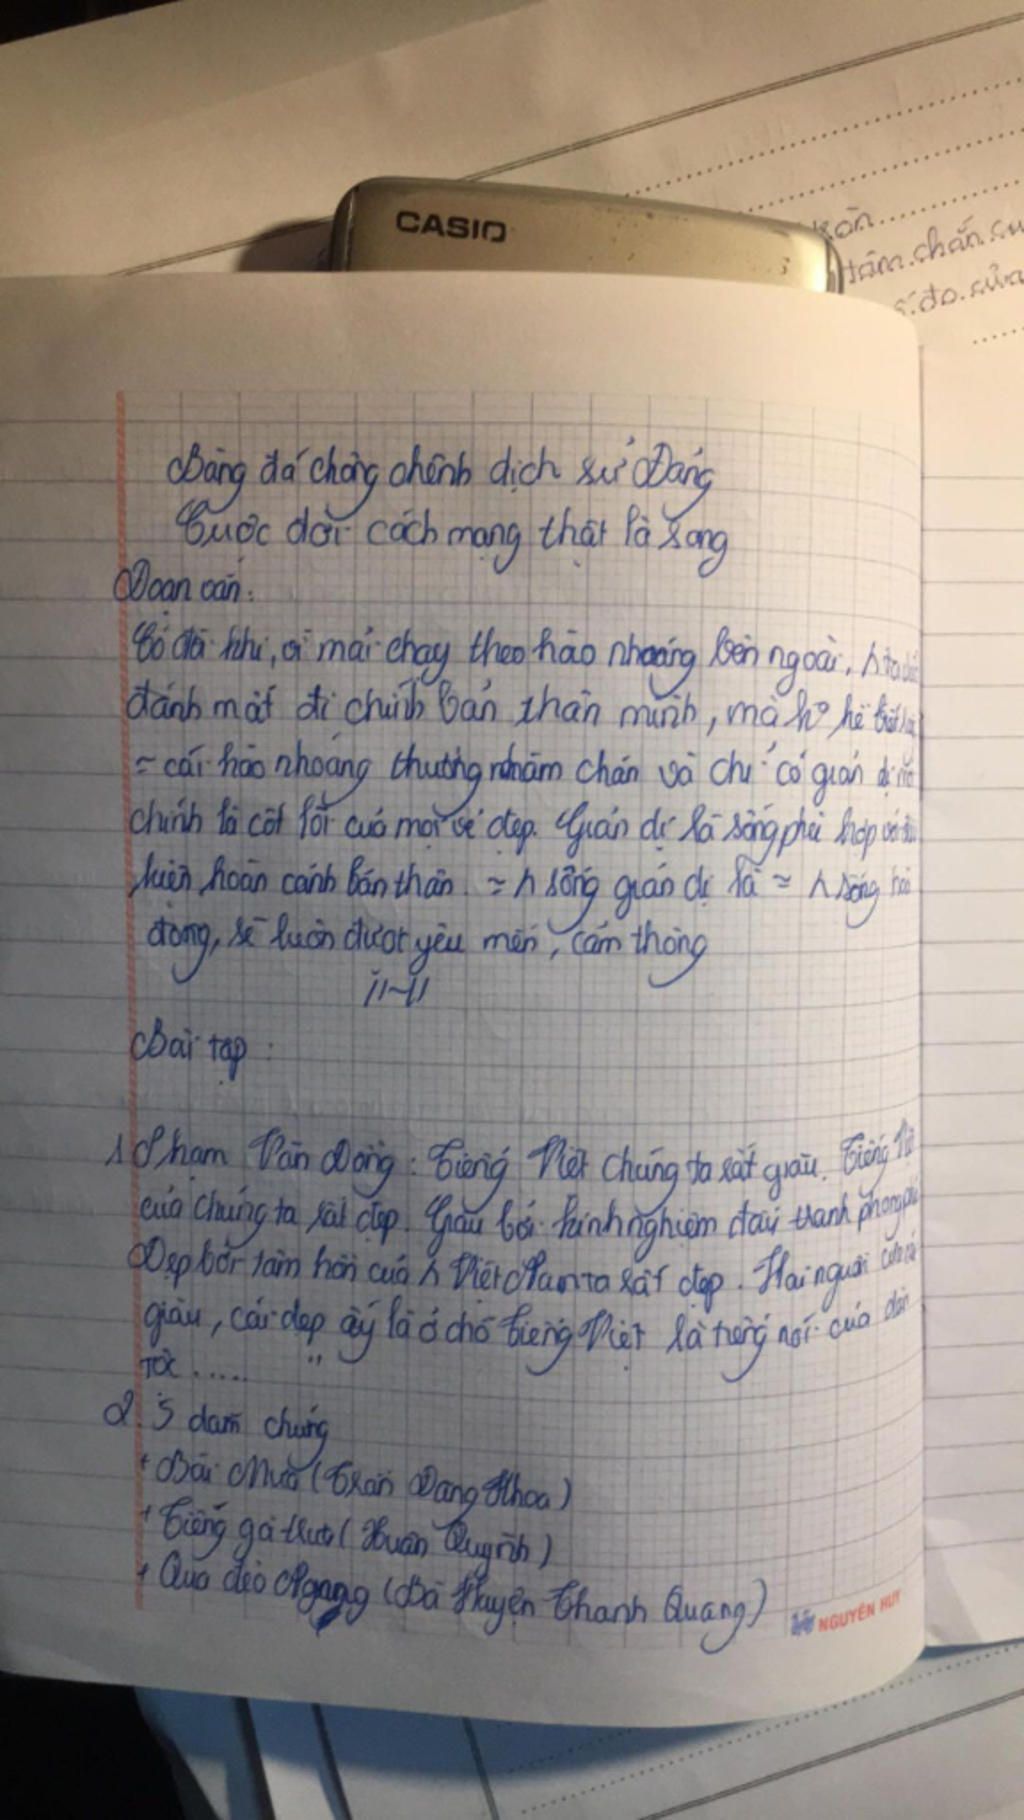 CASIO
tâm chắn
đo sửa
Bàng đá chông chênh dịch sử Đảng
Cuộc đời cách mạng thật là sang
Đoạn văn:
Có đôi khi, vì mải chạy theo hào nhoáng bên ngoài,
đánh mất đi chính bản thân mình, mà ko hề biết
= cái hào nhoáng thường nhàm chán và chỉ có giản dị mới
chính là cốt lõi của mọi vẻ đẹp. Giản dị là sống phù hợp với
kiện hoàn cảnh bản thân. = n sống giản dị là = n sống
đông, sẽ luôn được yêu mến, cảm thông
Bài tập:
1 Phạm Văn Đồng: Tiếng Việt chúng ta rất giàu. Tiếng
của chúng ta rất đẹp. Giàu bởi kinh nghiệm đấu tranh phong phú
Đẹp bởi tâm hồn của n Việt Nam ta rất đẹp. Hai nguồn của cái
giàu, cái đẹp ấy là ở chỗ tiếng Việt là tiếng nói của dân
tộc ..... "
2. 3 dẫn chứng
+ Bài Mưa (Trần Đăng Khoa)
+ Tiếng gà trưa (Xuân Quỳnh)
+ Qua đèo Ngang (Bà Huyện Thanh Quang)
NGUYÊN HUY